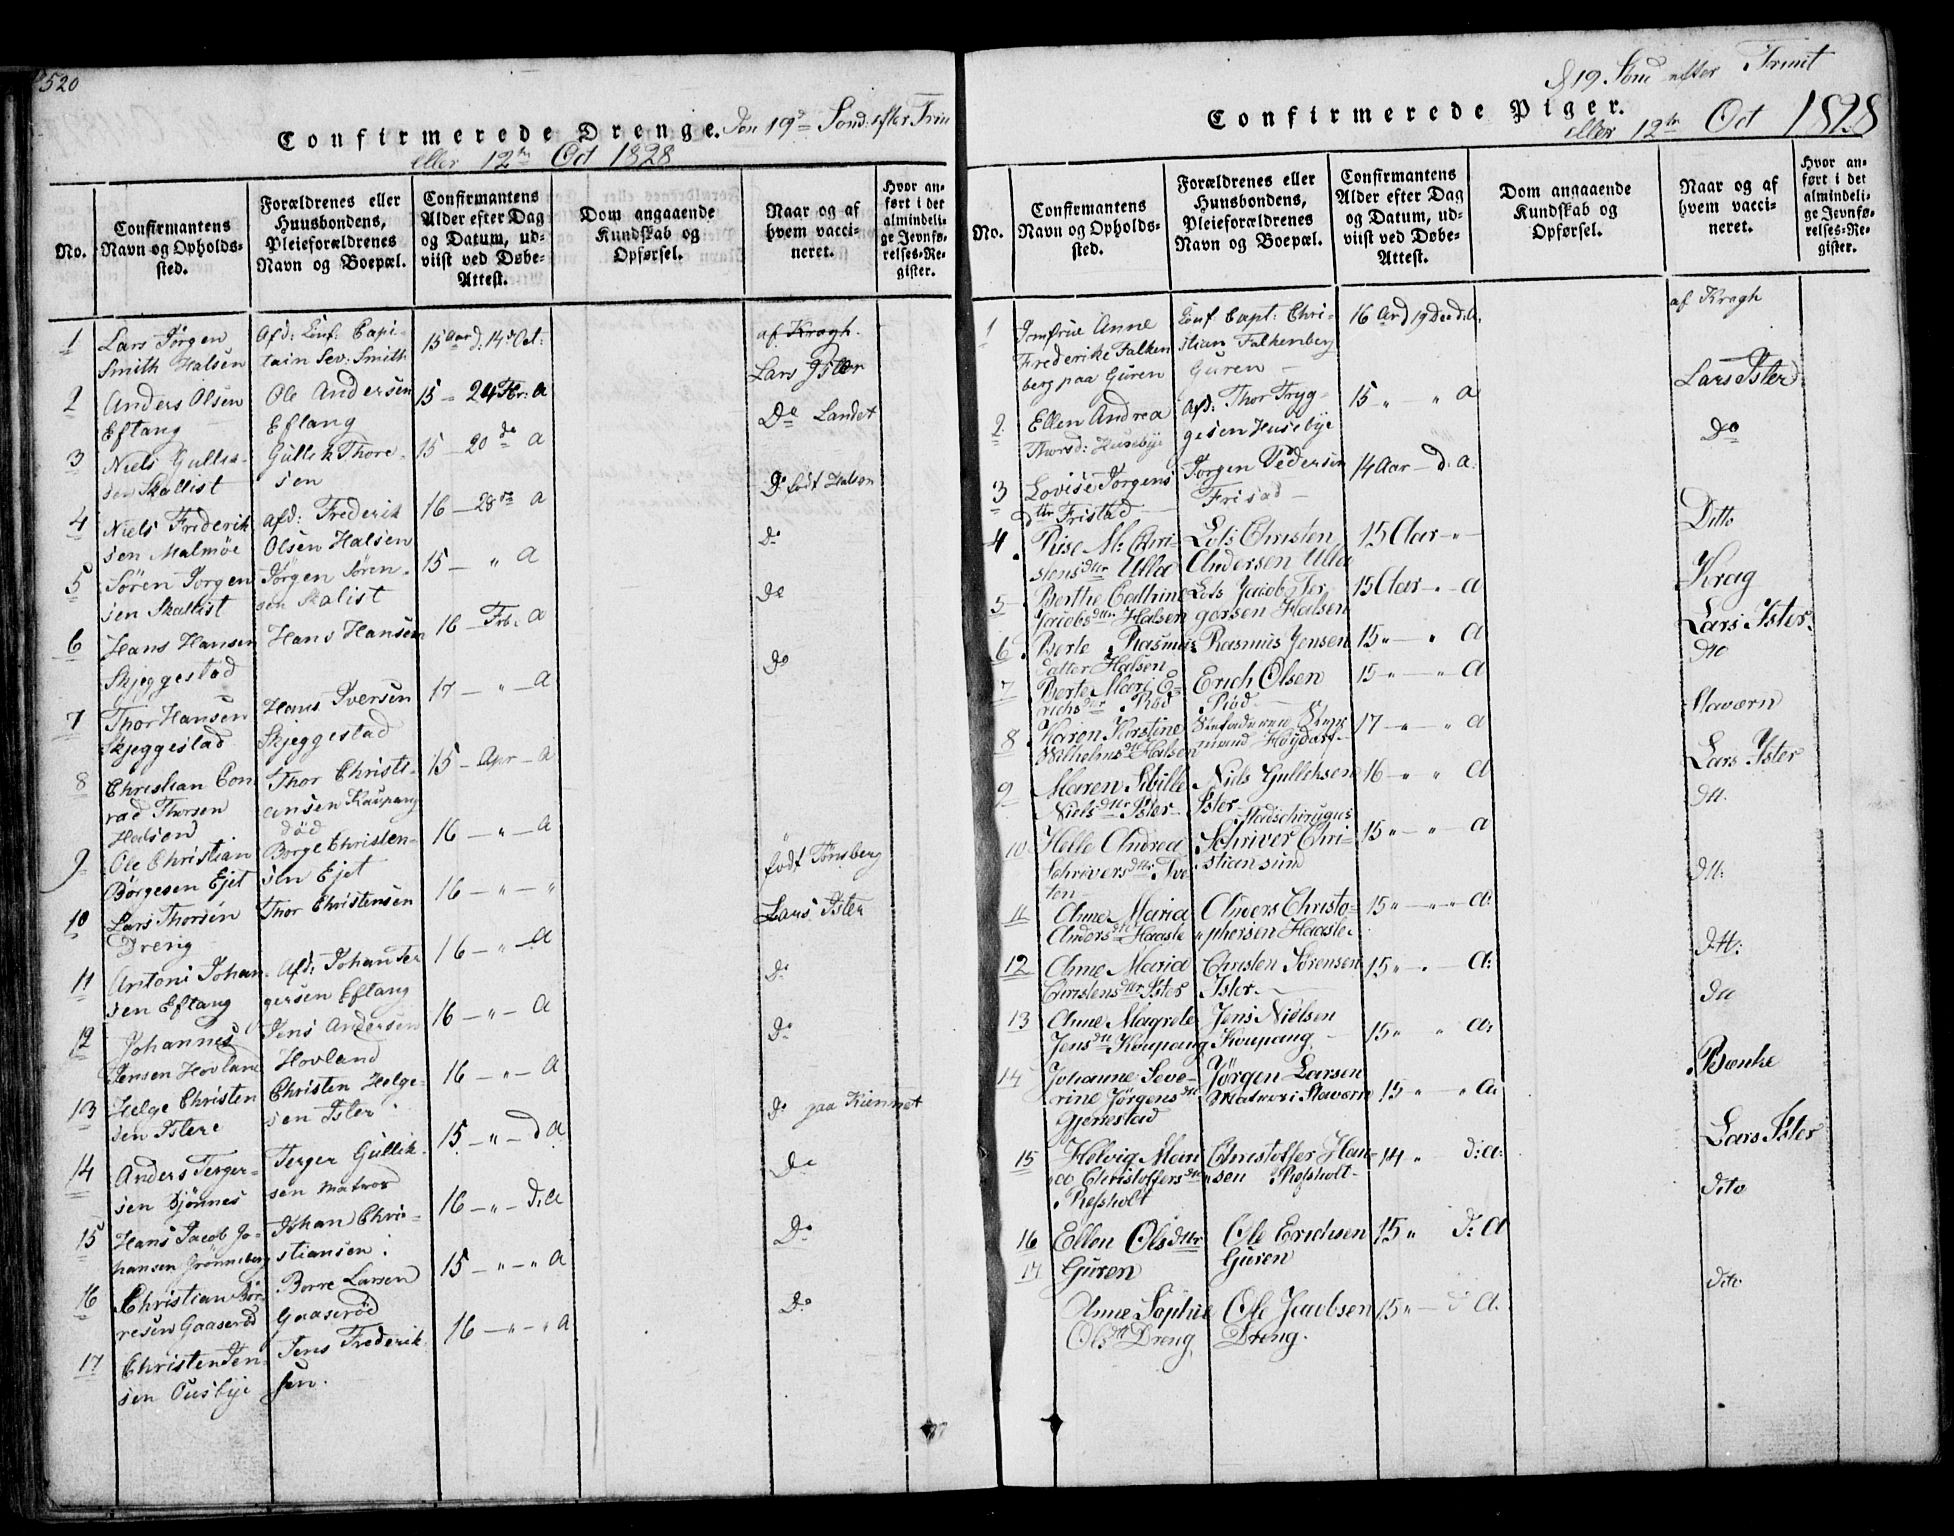 520
Confirmerede Drenge. Den 19de Sönd: efter Trin
eller 12te Oct 1828
No.
Confirmantens
Navn og Opholds-
sted.
Forældrenes eller
Huusbondens,
Pleieforældrenes
Navn og Boepæl.
Confirmantens
Alder efter Dag
og Datum, ud-
viist ved Døbe-
Attest.
Dom angaaende
Kundskab og
Opførsel.
Naar og af
hvem vacci-
neret.
Hvor an-
ført i det
almindeli-
ge Jevnfø-
relses-Re-
gister.
1
Lars Jörgen
Smith Halsen
Afd: Capi-
tain Sev: Smith
15 Aar d: 14 Oct:
af Kragh.
2
Anders Olsen
Eftang
Ole Andersen
Eftang
15 - 24 Fbr: a
Lars Ister
3
Niels Gullik-
sen Skallist
Gullik Thore-
sen
15 - 20 do a
Do Landet
4
Niels Friderik
sen Malmöe
Afd: Frederik
Olsen Halsen
16 - 28 a
Do født Halsen
5
Sören Jorgen
sen Skallist
Jörgen Sören-
sen Skalist
15 - " a
Do
6
Hans Hansen
Skjeggestad
Hans Hansen
16 - Frb. a
Do
7
Thor Hansen
Skjeggestad
Hans Iversen
Skjeggestad
17 - " - a
Do
8
Christian Con
rad Thorsen
Halsen
Thor Christi-
ansen Kaupang
död
15 - Apr - a
9
Ole Christian
Börgesen Ejet
Borge Christen-
sen Ejet
16 - " - a
født Tönsberg
10
Lars Thorsen
Dreng
Thor Christensen
16 - " - "
Lars Ister
11
Antoni Johan
sen Eftang
Afd: Johan Ter
gersen Eftang
16 - " - a
Do
12
Johannes
Jensen Hovland
Jens Andersen
Hovland
16 - " - a
Do
13
Helge Christen
sen Istere
Christen Helge-
sen Ister
16 - " - a
Do paa
14
Anders Terger-
sen Bjönnes
Terger Gullik-
sen Matros
15 - " - d a
Do
15
Hans Jacob Jo-
hansen Grönneberg
Johan Chri-
stiansen.
16 - " - d: a
Do
16
Christian Bör-
resen Gaaseröd
Borre Larsen
Gaaseröd
15 - " - " a
Do
17
Christen Jen-
sen Ousbye
Jens Frederik
sen.
16 - " - " a
d 19. Sönd efter Trinit
Confirmerede Piger.
eller 12te Oct 1828
No.
Confirmantens
Navn og Opholds-
sted.
Forældrenes eller
Huusbondens,
Pleieforældrenes
Navn og Boepæl.
Confirmantens
Alder efter Dag
og Datum, ud-
viist ved Døbe-
Attest.
Dom angaaende
Kundskab og
Opførsel.
Naar og af
hvem vacci-
neret.
Hvor an-
ført i det
almindeli-
ge Jevnfø-
relses-Re-
gister.
1
Jomfrue Anne
Frederike Falken
berg paa Guren
Capt: Chri-
stian Falkenberg
Guren
16 Ar d 19 Dec d: a.
af Kragh
2
Ellen Andrea
Thorsd: Husebye
Afd: Thor Tryg-
gesen Husebye
15 " " a
Lars Ister
3
Lovise Jörgens
dtr Fristad
Jorgen Pedersen
Frisad
14 Aar - d. a.
Do
4
Rise M: Chri-
stensdtr Ulla
Lots Christen
Andersen Ulla
15 Aar - " -
Ditto
5
Berthe Cathrine
Jacobsdtr Halsen
Lots Jacob Ter
gersen Halsen
15 Aar - a
Krag
6
Berte Rasmus
datter Halsen
Rasmus Jensen
15 " - " a
Lars Ister.
7
Berte Mari E-
richsdtr Röd
Erich Olsen
Röd
15 " - " a
dto
8
Karen Kirstine
Wilhelmsdt Halsen
17 - " a
Staværn
9
Maren Sibille
Nielsdtr Ister
Niels Gulleksen
Ister
16 - " " a
Lars Ister
10
Helle Andrea
Schriversdtr Tve
ten
Stadschirugus
Schriver Chri-
stiansund
15 " - " - a
dtt.
11
Anne Maria
Andersdtr Haasle
Anders Christo-
phersen Haasle.
15 " - " - " a:
dtt:
12
Anne Maria
Christensdtr Ister
Christen Sörensen
Ister
15 " - . - a:
dtt:
13
Anne Magrete
Jensdtt Koupang
Jens Nielsen
Koupang
15 " " a:
dtt
14
Johanne Seve-
rine Jörgensdtt
Gjerrestad
Jörgen Larsen
Matros i Staværn
15 " " a:
Bænke
15
Helvig Mari
Christoffersdtt
Refsholt
Christoffer Han-
sen Refsholt
14 " d: a:
Lars Ister
16
Ellen Olsdttr
Guren
Ole Erichsen
Guren
15 " d: a
dito
17
Anne Sophie
Olsdtt Dreng
Ole Jacobsen
Dreng.
15 " - d a.
dito